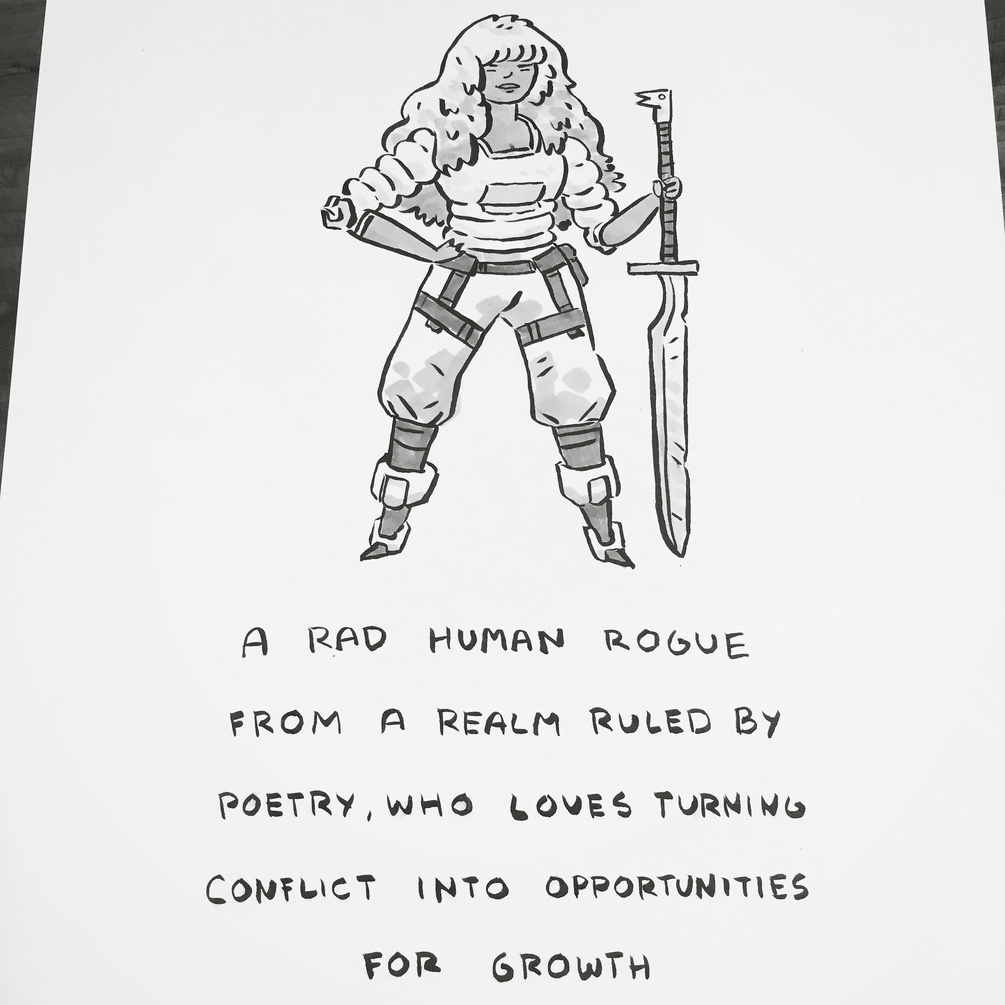 A RAD HUMAN ROGUE
FROM A REALM RULED BY
POETRY, WHO LOVES TURNING
CONFLICT INTO OPPORTUNITIES
FOR GROWTH